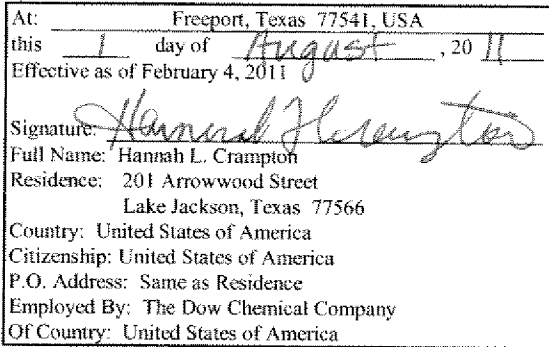 At: Freeport, Texas 77541, USA
this 1 day of August, 20 11
Effective as of February 4, 2011
Signature:
Full Name: Hannah L. Crampton
Residence: 201 Arrowwood Street
Lake Jackson, Texas 77566
Country: United States of America
Citizenship: United States of America
P.O. Address: Same as Residence
Employed By: The Dow Chemical Company
Of Country: United States of America